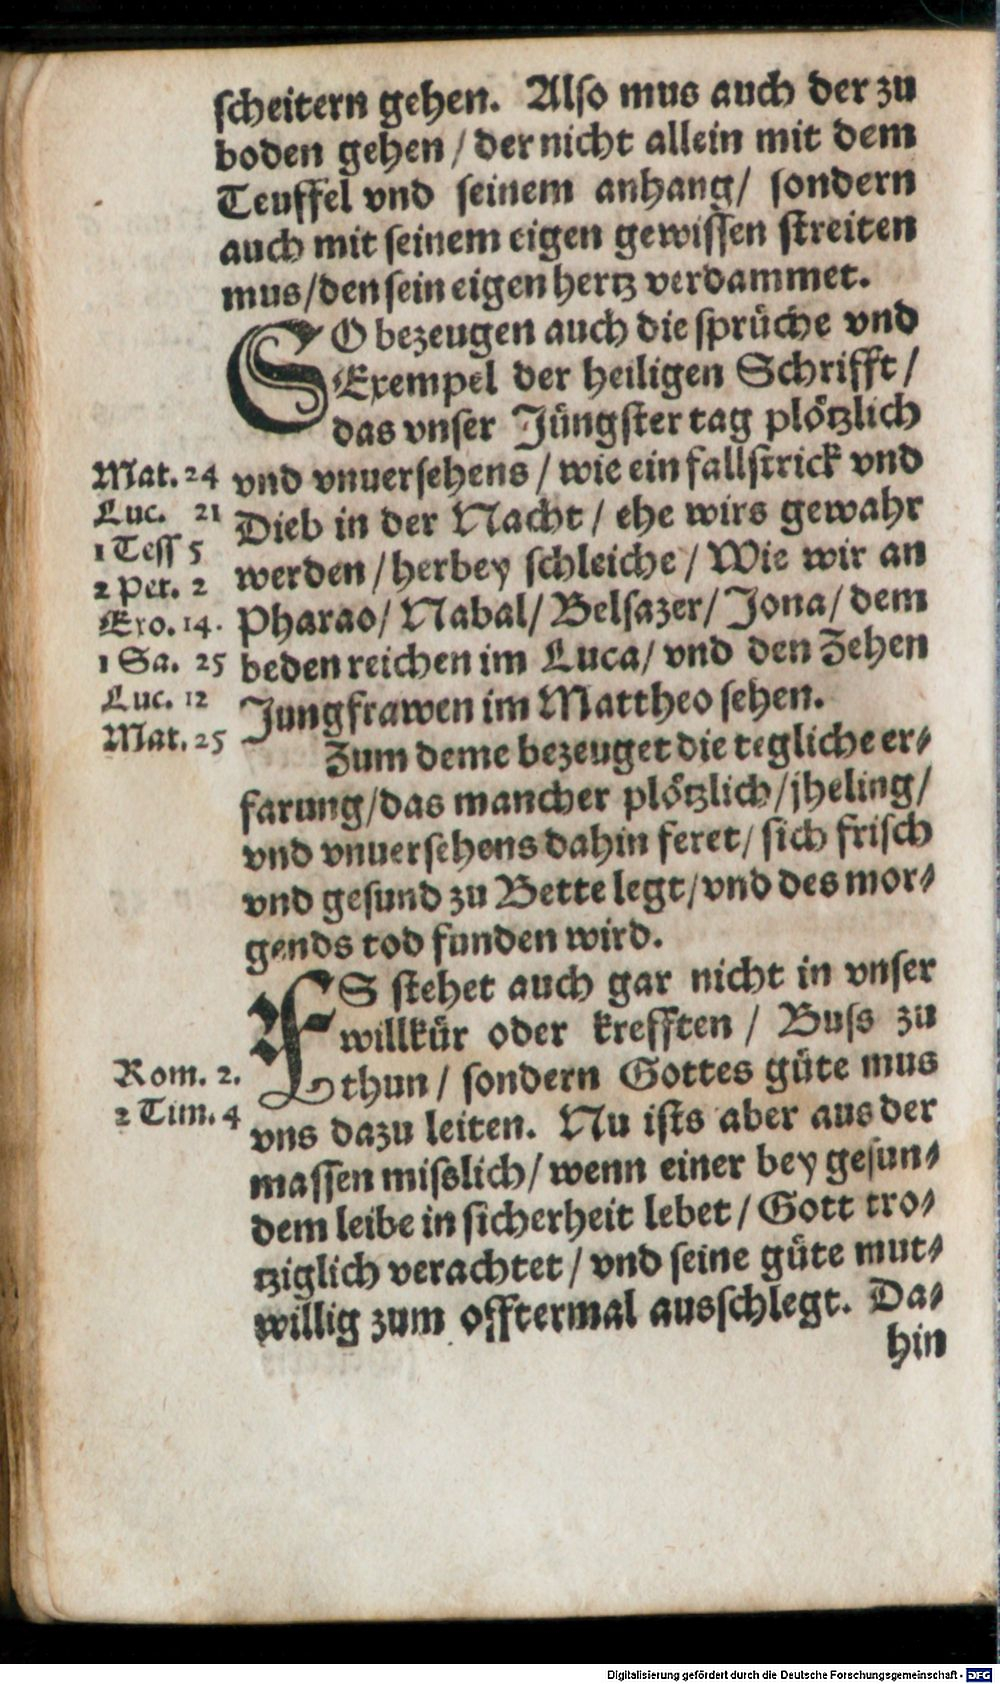 scheitern gehen. Also mus auch der zu
boden gehen / der nicht allein mit dem
Teuffel vnd seinem anhang / sondern
auch mit seinem eigen gewissen streiten
mus / den sein eigen hertz verdammet.
SO bezeugen auch die sprüche vnd
Exempel der heiligen Schrifft /
das vnser Jüngster tag plötzlich
Mat. 24 vnd vnuersehens / wie ein fallstrick vnd
Luc. 21 Dieb in der Nacht / ehe wirs gewahr
1 Tess 5 werden / herbey schleiche / Wie wir an
2 Pet. 2 Pharao / Nabal / Belsazer / Jona / dem
Exo. 14. beden reichen im Luca / vnd den Zehen
1 Sa. 25 Jungfrawen im Mattheo sehen.
Luc. 12
Mat. 25
Zum deme bezeuget die tegliche er-
farung / das mancher plötzlich / jheling /
vnd vnuersehens dahin feret / sich frisch
vnd gesund zu Bette legt / vnd des mor-
gends tod funden wird.
ES stehet auch gar nicht in vnser
willkür oder krefften / Buss zu
Rom. 2. thun / sondern Gottes güte mus
2 Tim. 4 vns dazu leiten. Nu ists aber aus der
massen misslich / wenn einer bey gesun-
dem leibe in sicherheit lebet / Gott tro-
tziglich verachtet / vnd seine güte mut-
willig zum offtermal ausschlegt. Da-
hin
Digitalisierung gefördert durch die Deutsche Forschungsgemeinschaft - DFG